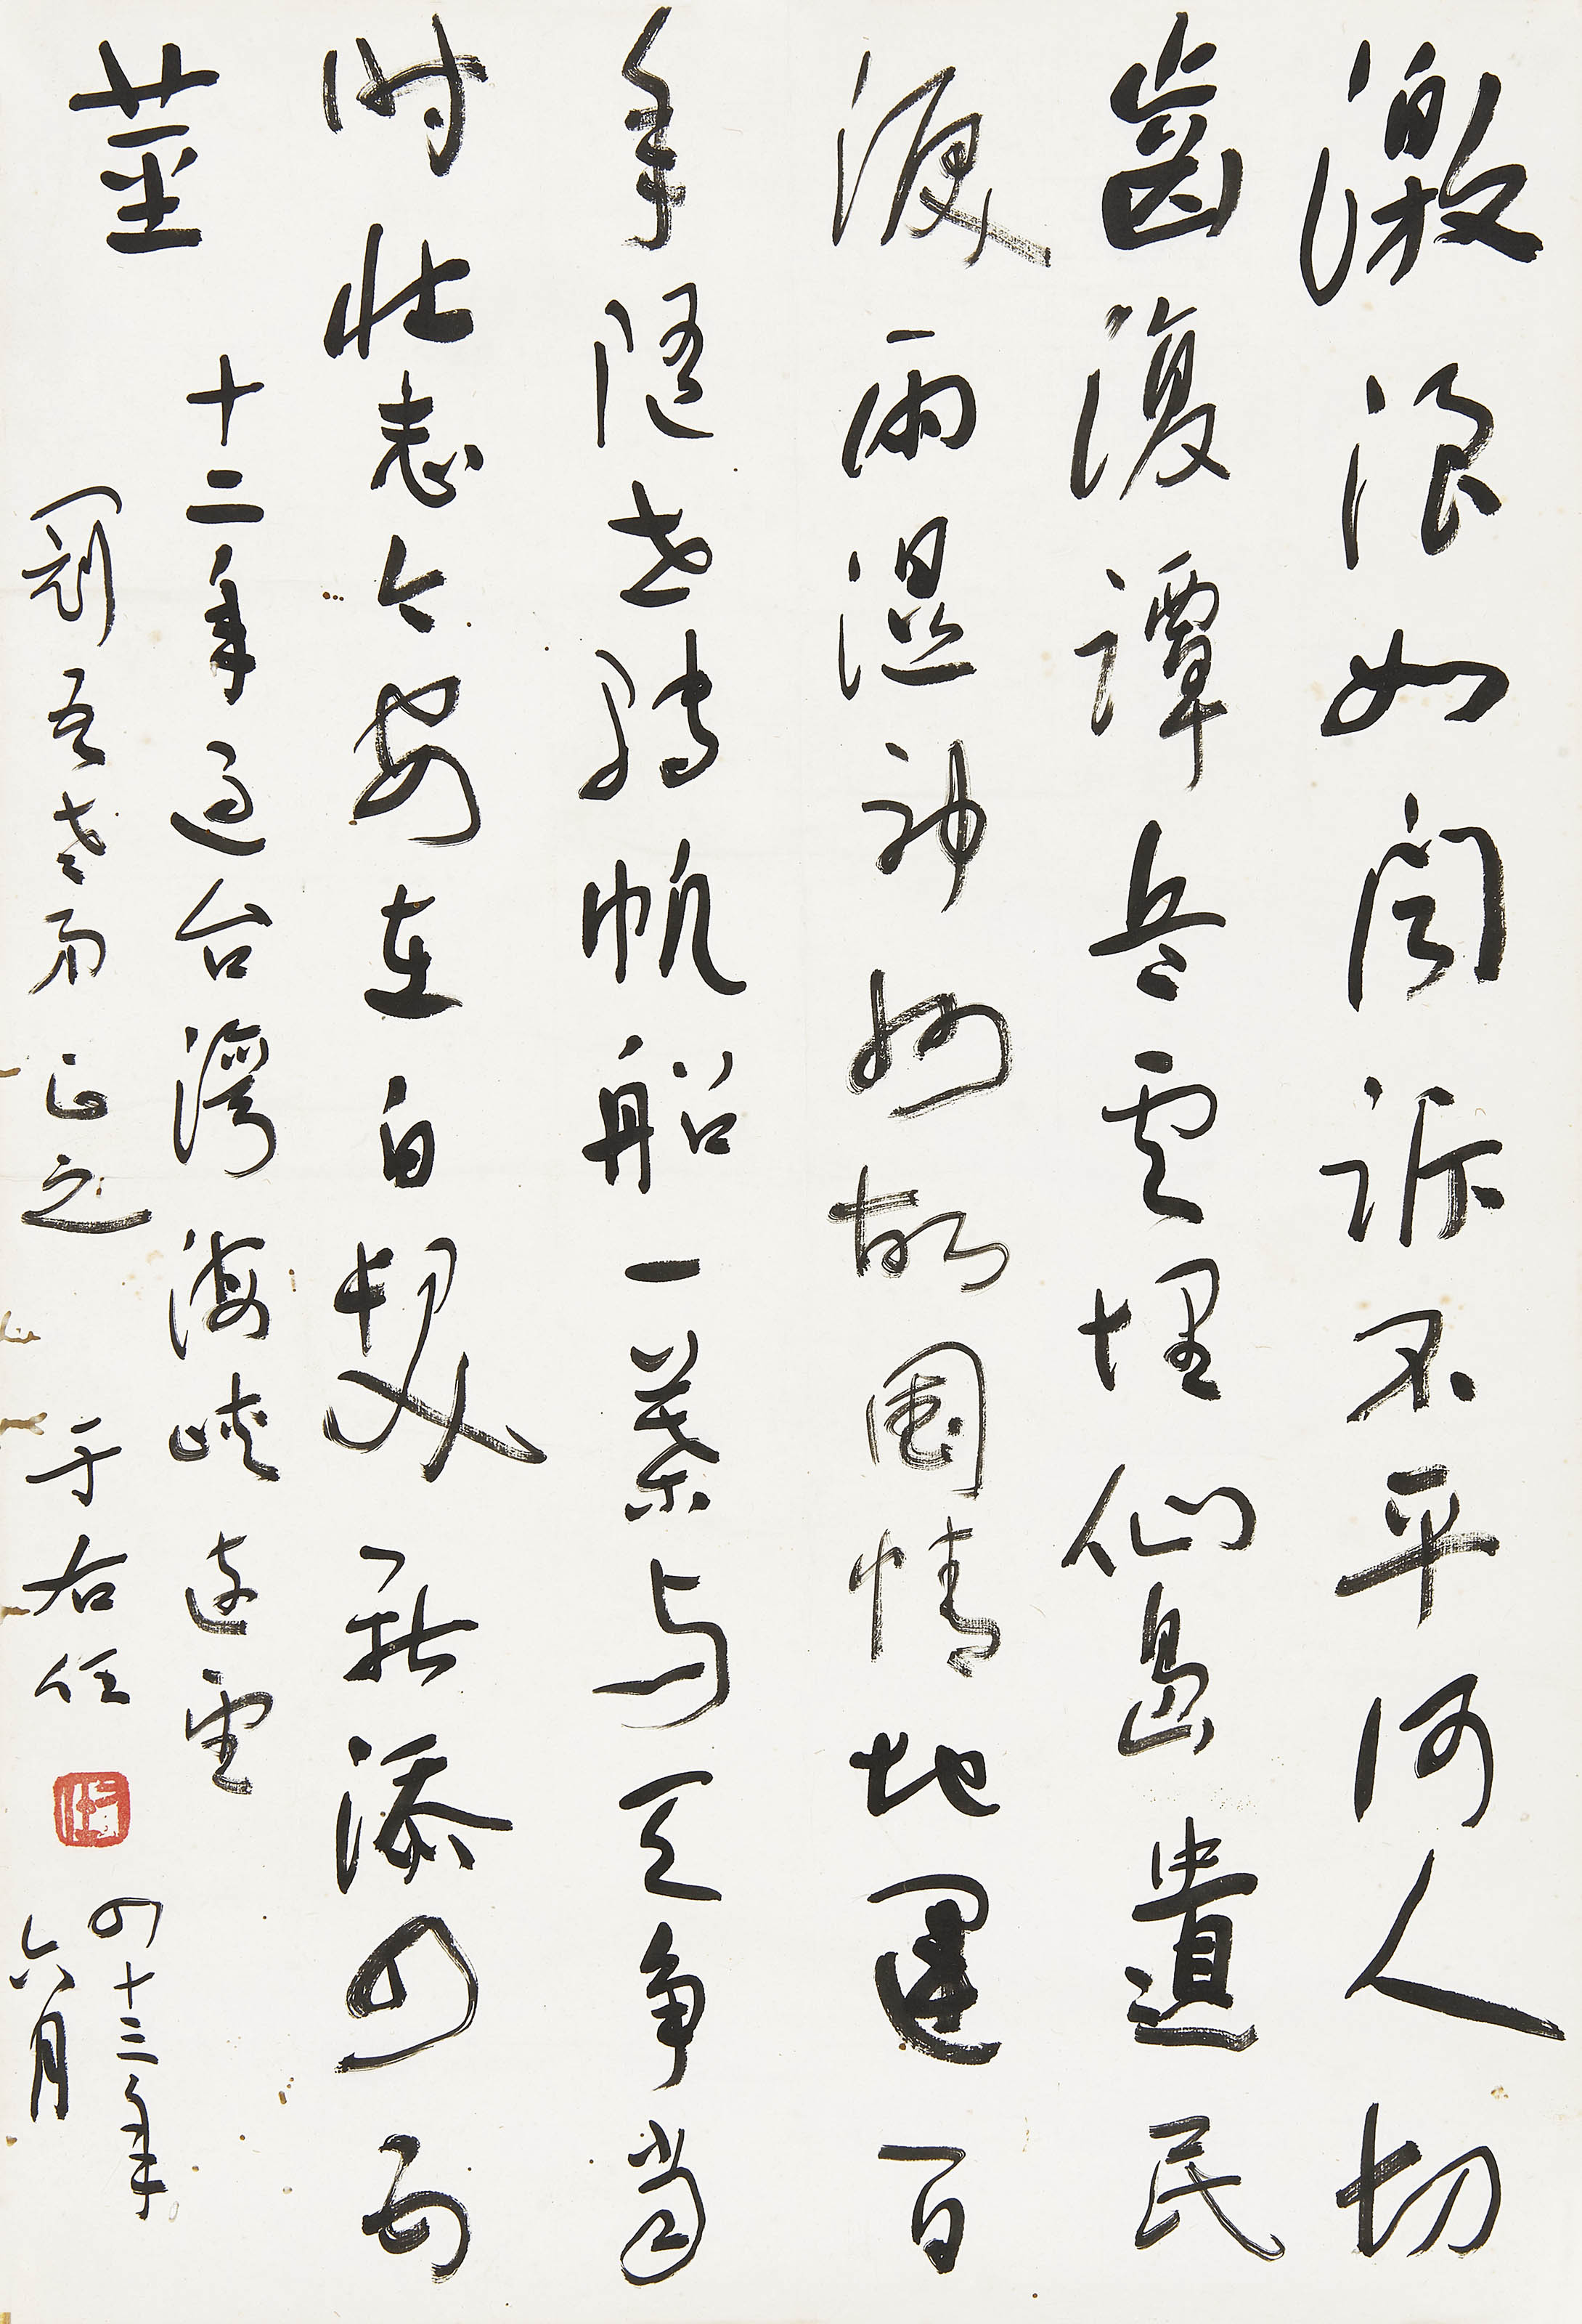 激浪如聞訴不平何人切
齒復譚兵雲埋仙島遺民
淚雨濕神州故國情地運百
年隨世轉帆船一葉與天爭當
時壯志今安在白髮新添四五
莖
十二年過台灣海峽遠望
吾老弟正之 于右任
四十三年
六月